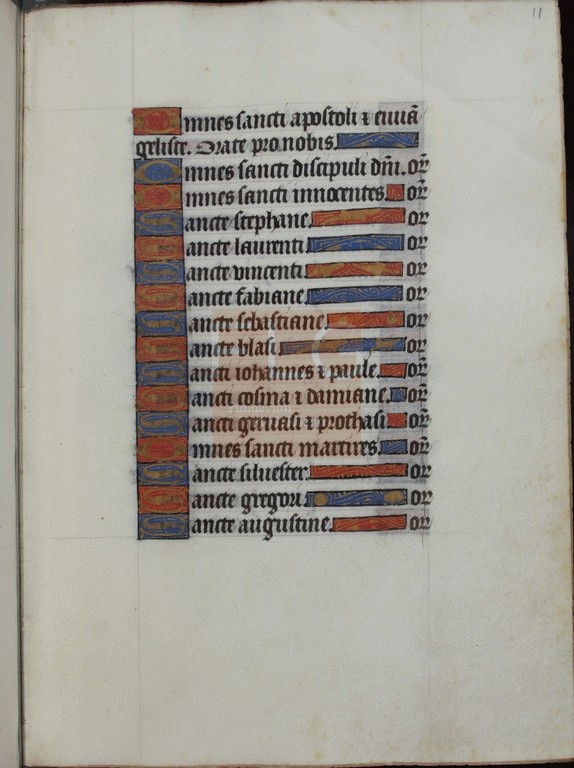 11
Omnes sancti apostoli ⁊ euuā
geliste. Orate pro nobis.
Omnes sancti discipuli dñi. or̃
Omnes sancti innocentes. or̃
Sancte stephane. or̃
Sancte laurenti. or̃
Sancte vincenti. or̃
Sancte fabiane. or̃
Sancte sebastiane. or̃
Sancte blasi. or̃
Sancti iohannes ⁊ paule. or̃
Sancti cosma ⁊ damiane. or̃
Sancti geruasi ⁊ prothasi. or̃
Omnes sancti martires. or̃
Sancte siluester. or̃
Sancte gregori. or̃
Sancte augustine. or̃